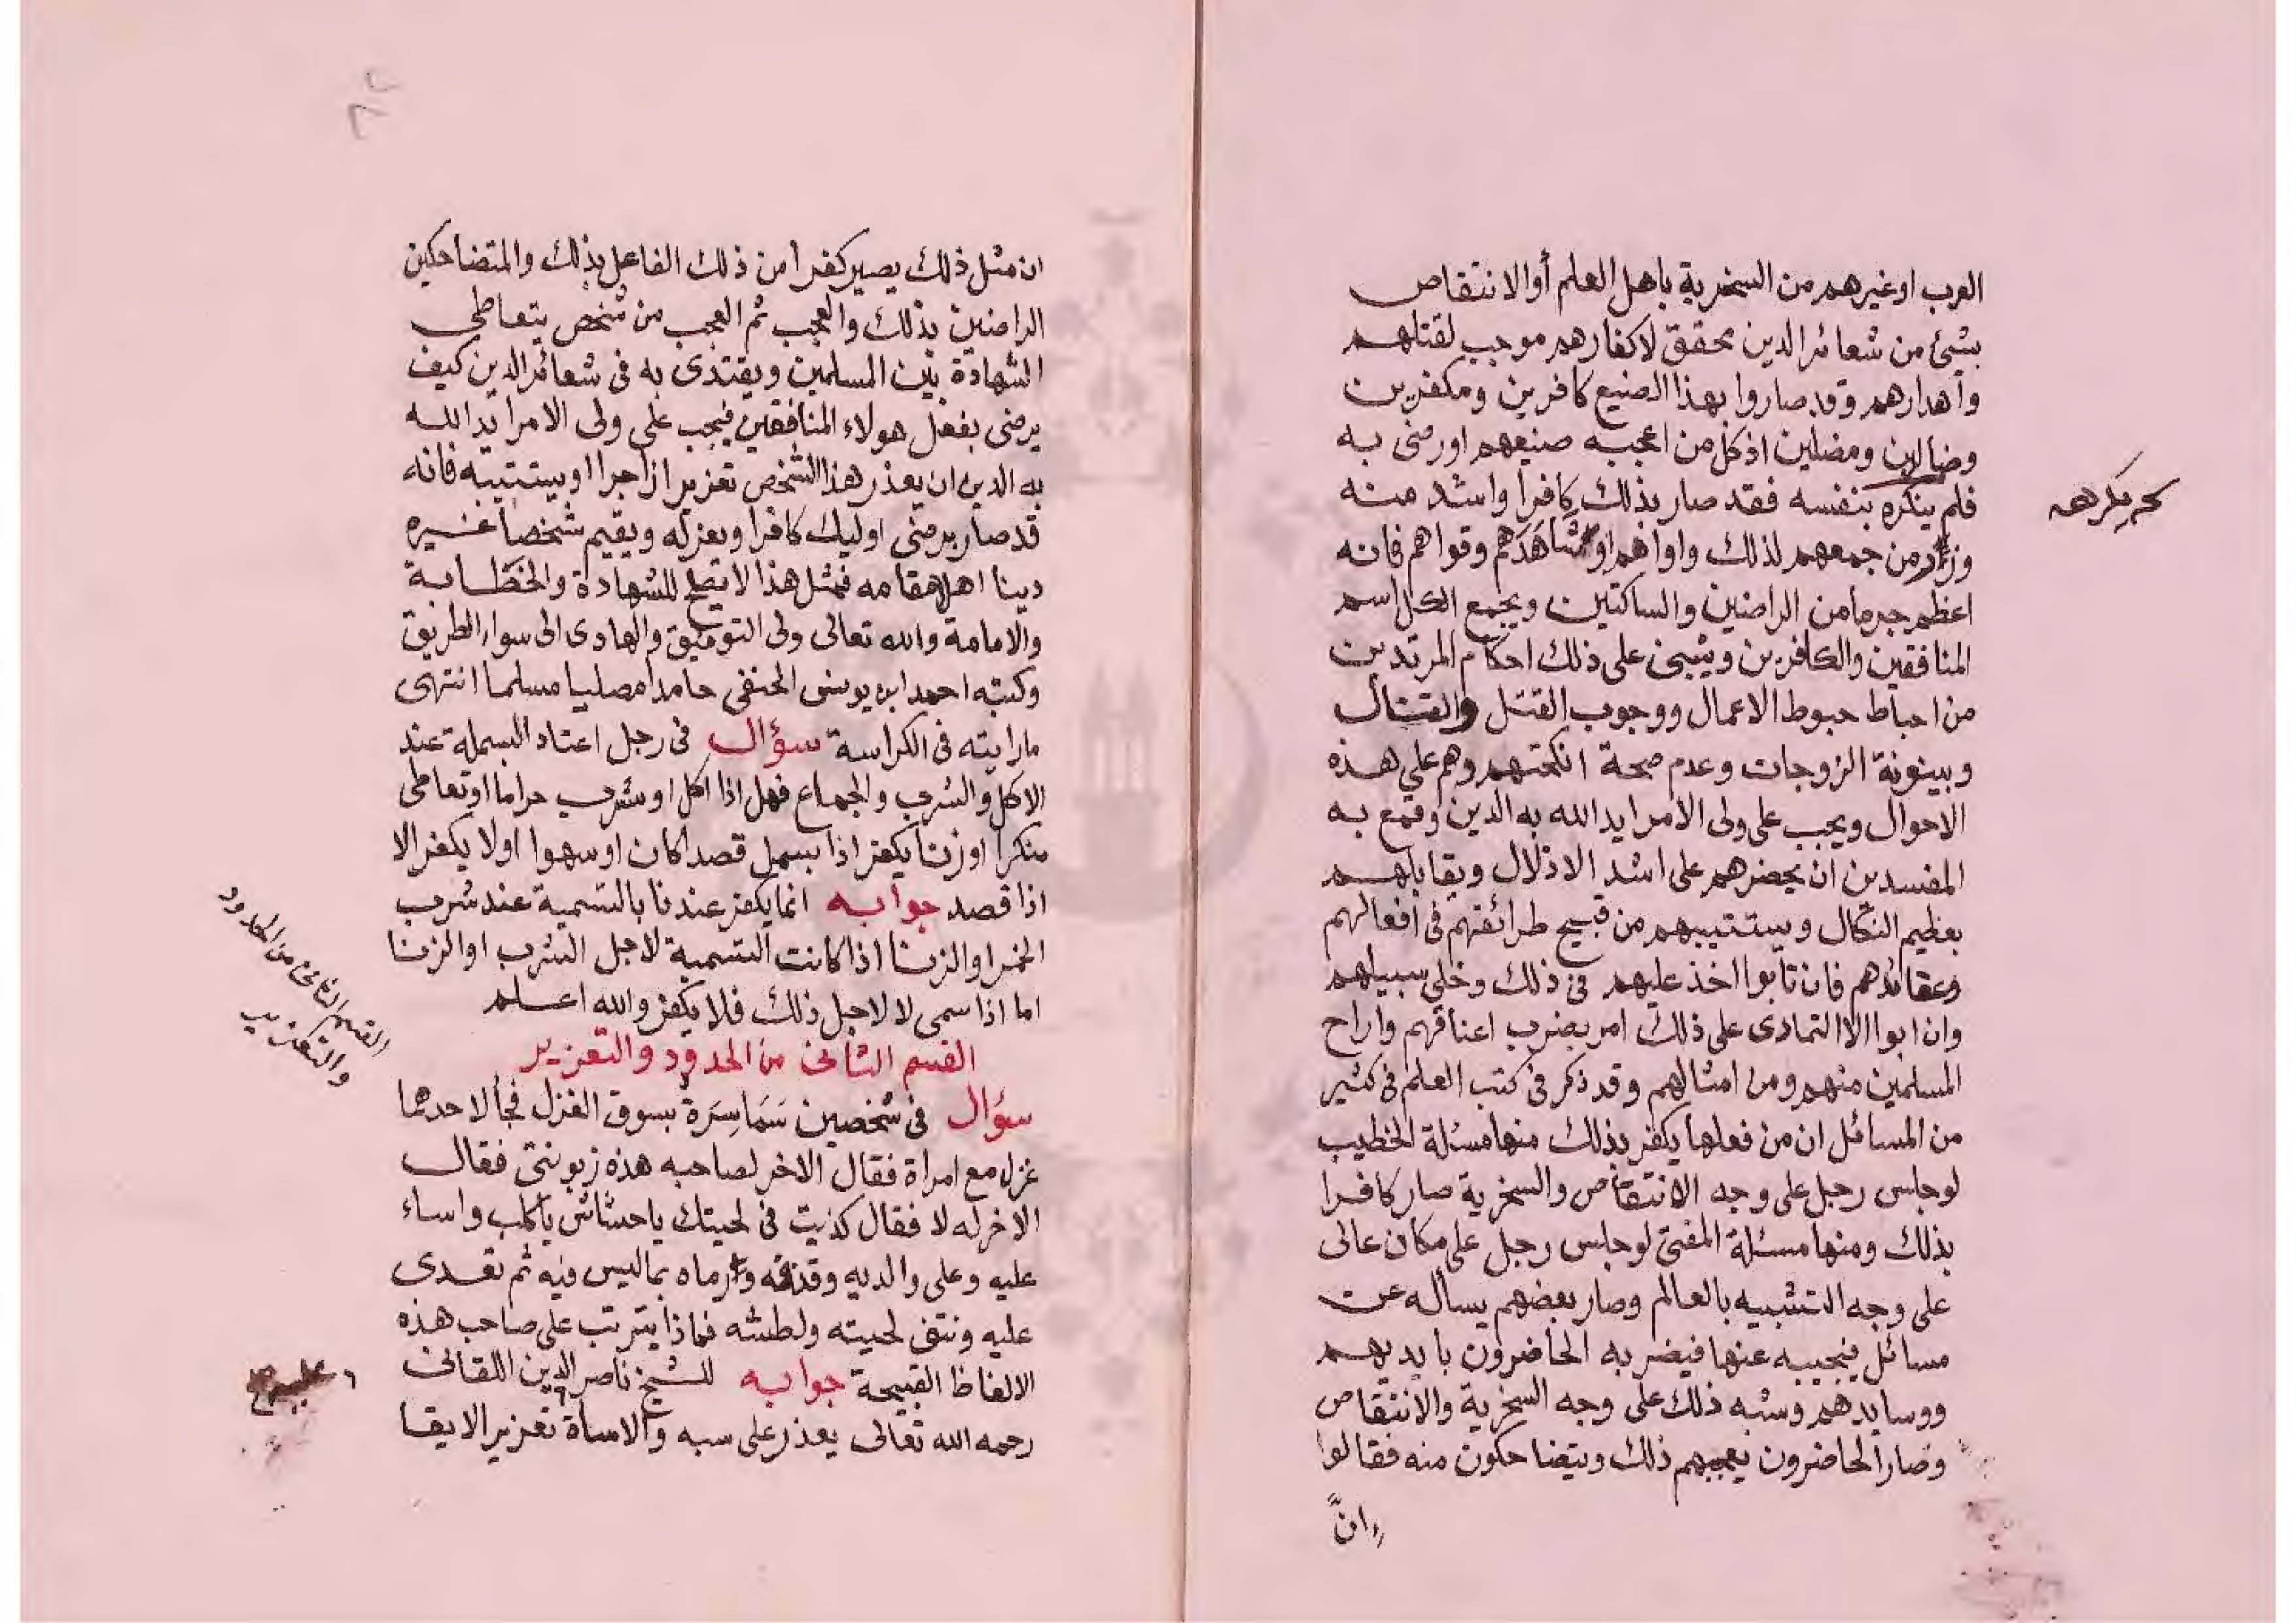 العرب اوغيرهم من السخرية باهل العلم أوالانتقاص
بشئ من شعائر الدين محقق لاكفارهم موجب لقتلهم
واهدارهم وقد صاروا بهذا الصنيع كافرين ومكفرين
وضالين ومضلين اذ كل من اعجبه صنيعهم اورضى به
فلم ينكره بنفسه فقد صار بذلك كافرا واشد منه
من جمعهم لذلك واواهم او شاهدهم وقواهم فانه
اعظم جرما من الراضين والساكتين ويجمع الكل اسم
المنافقين والكافرين وينبنى على ذلك احكام المرتدين
من احباط حبوط الاعمال ووجوب القتل والقتال
وبينونة الزوجات وعدم صحة انكحتهم وهم على هذه
الاحوال ويجب على ولى الامر ايد الله به الدين وقمع به
المفسدين ان يحضرهم على اشد الاذلال ويقابلهم
بعظيم النكال ويستتيبهم من قبيح طرائقهم فى افعالهم
وعقائدهم فان تابوا اخذ عليهم فى ذلك وخلى سبيلهم
وان ابوا الا التمادى على ذلك امر بضرب اعناقهم واراح
المسلمين منهم ومن امثالهم وقد ذكر فى كتب العلم فى كثير
من المسائل ان من فعلها يكفر بذلك منها مسئلة الخطيب
لوجلس رجل على وجه الانتقاص والسخرية صار كافرا
بذلك ومنها مسئلة المفتى لوجلس رجل على مكان عالى
على وجه التشبيه بالعالم وصار بعضهم يسأله عن
مسائل فيجيبه عنها فيضربه الحاضرون بايديهم
ووسايدهم وشبه ذلك على وجه السخرية والانتقاص
وصار الحاضرون يعجبهم ذلك ويتضاحكون منه فقالوا
انّ
ان مثل ذلك يصير كفرا من ذلك الفاعل بذلك والمتضاحكين
الراضين بذلك والعجب ثم العجب من شخص يتعاطى
الشهادة بين المسلمين ويقتدى به فى شعائر الدين كيف
يرضى بفعل هولاء المنافقين فيجب على ولى الامر ايد الله
به الدين ان يعذر هذا الشخص تعزيرا زاجرا اويستتيبه فانه
قد صار برضى اوليك كافرا ويعزله ويقيم شخصا غيره
دينا اهلا مقامه فمثل هذا لا يصلح للشهادة والخطابة
والامامة والله تعالى ولى التوفيق والهادى الى سواء الطريق
وكتبه احمد ابن يونس الحنفى حامدا مصليا مسلما انتهى
ما رايته فى الكراسة سؤال فى رجل اعتاد البسملة عند
الاكل والشرب والجماع فهل اذا اكل اوشرب حراما اوتعاطى
منكرا اوزنا يكفر اذا بسمل قصدا كان اوسهوا اولا يكفر الا
اذا قصد جوابه انما يكفر عندنا بالتسمية عند شرب
الخمر او الزنا اذا كانت التسمية لاجل الشرب او الزنا
اما اذا سمى لا لاجل ذلك فلا يكفر والله اعلم
القسم الثانى من الحدود والتعزير
القسم الثانى من الحدود
والتعزير
سؤال فى شخصين سَمَاسِرَة بسوق الغزل فجأ لاحدهما
غزل مع امراة فقال الاخر لصاحبه هذه زبونتى فقال
الاخر له لا فقال كذبت فى لحيتك ياحشاش ياكلب واساء
عليه وعلى والديه وقذفه ورماه بما ليس فيه ثم تعدى
عليه ونتف لحيته ولطشه فماذا يترتب على صاحب هذه
الالفاظ القبيحة جوابه للشيخ ناصر الدين اللقانى
رحمه الله تعالى يعذر على سبه والاساة تعزير الايقا